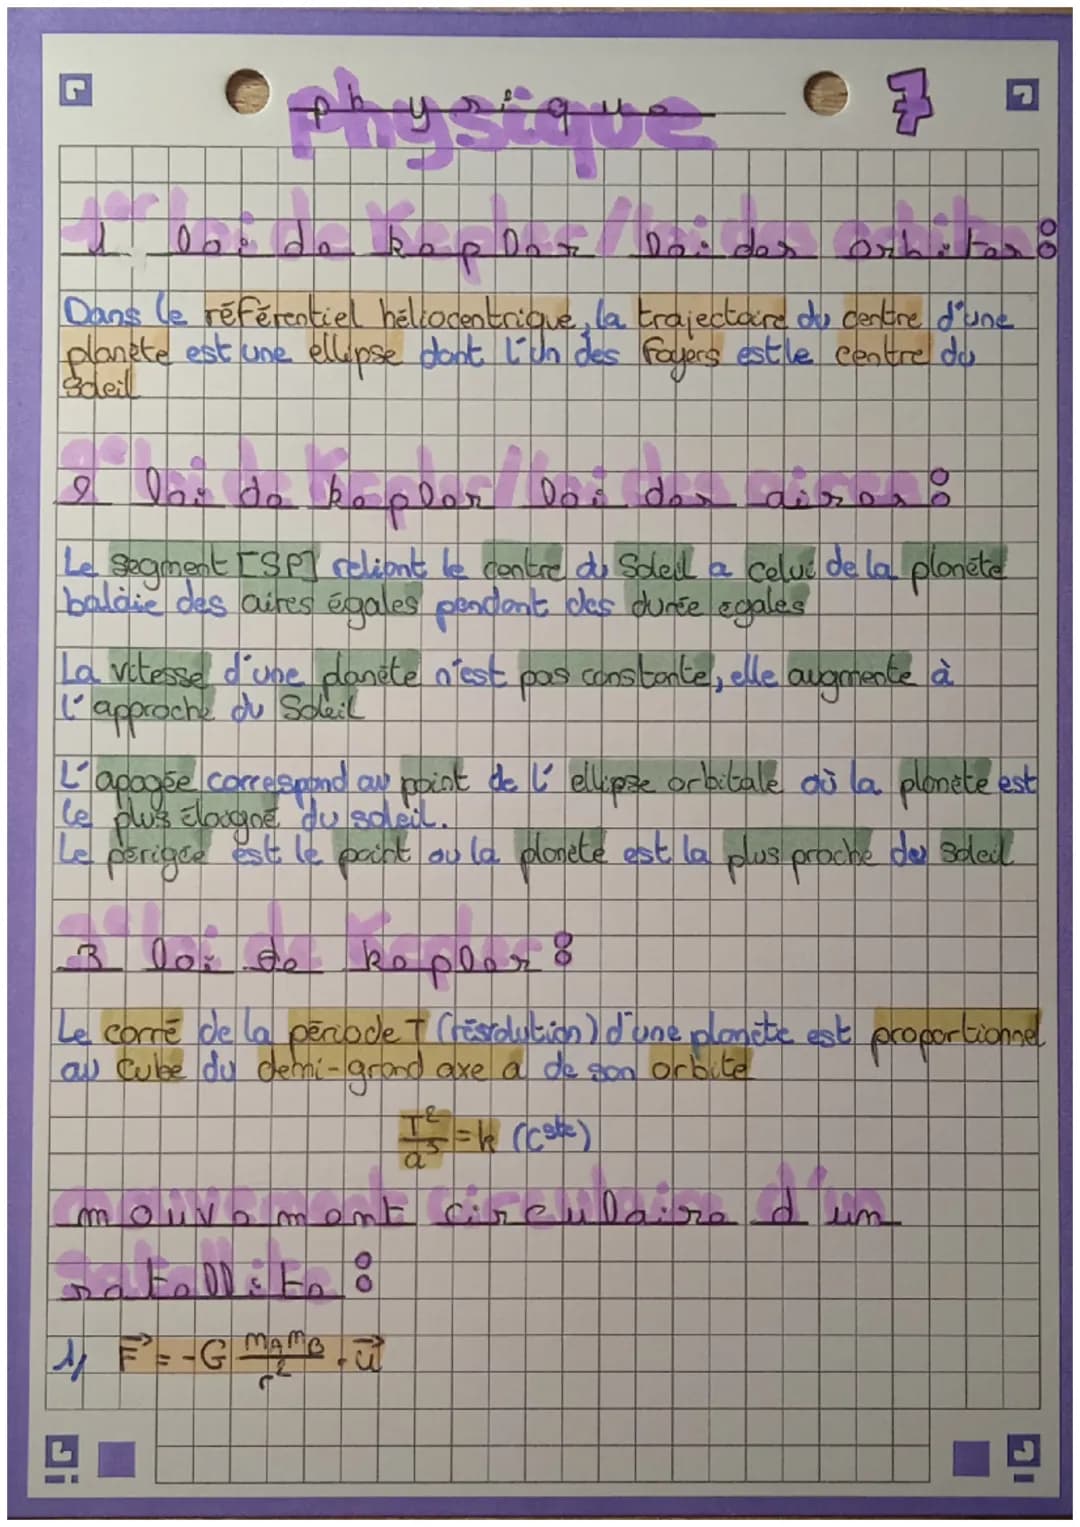 physique 7
1er loi de Kepler/loi des orbites :
Dans le référentiel héliocentrique, la trajectoire du centre d'une
planète est une ellipse dont l'un des foyers est le centre du
Soleil
2e loi de Kepler/loi des aires :
Le segment [SP] reliant le centre du Soleil a celui de la planète
balaie des aires égales pendant des durée égales
La vitesse d'une planète n'est pas constante, elle augmente à
l'approche du Soleil
L'apogée correspond au point de l'ellipse orbitale où la planète est
le plus éloigné du soleil.
Le périgée est le point ou la planète est la plus proche du Soleil
3e loi de Kepler :
Le carré de la période T (révolution) d'une planète est proportionnel
au cube du demi-grand axe a de son orbite
T²/a³ = k (cste)
mouvement circulaire d'un
satellite :
1) F⃗ = -G mA mB / r² . u⃗